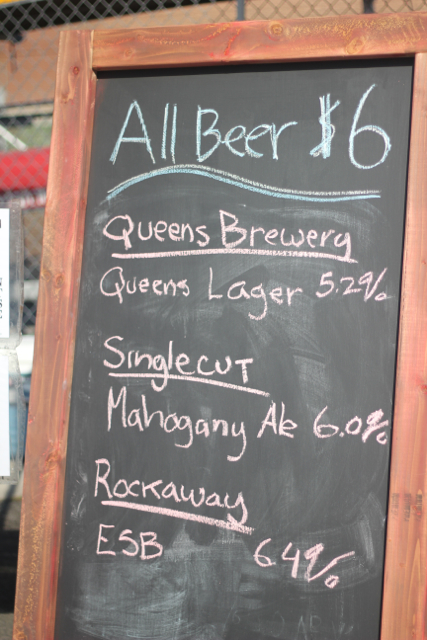 All Beer $6
Queens Brewery
Queens Lager 5.2%
Singlecut
Mahogany Ale 6.0%
Rockaway
ESB 6.4%